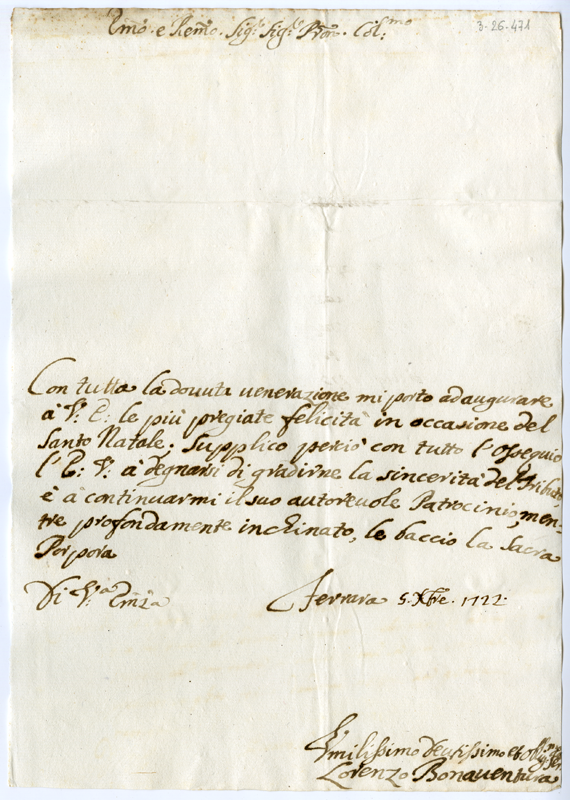 Emo: e Remo: Sigr: Sigr: Pron: Col:mo
3-26-471
Con tutta la douuta uenerazione mi porto ad augurare
à V: E: le più pregiate felicità in occasione del
Santo Natale. Supplico perciò con tutto l'ossequio
l'E: V: à degnarsi di gradirne la sincerità del Tributo,
è à continuarmi il suo autoreuole Patrocinio, men=
tre profondamente inchinato, le baccio la Sacra
Porpora
Di V:a Emza
Ferrara 5. Xbre. 1722.
Vmilissimo Deuotissimo et
Lorenzo Bonauentura